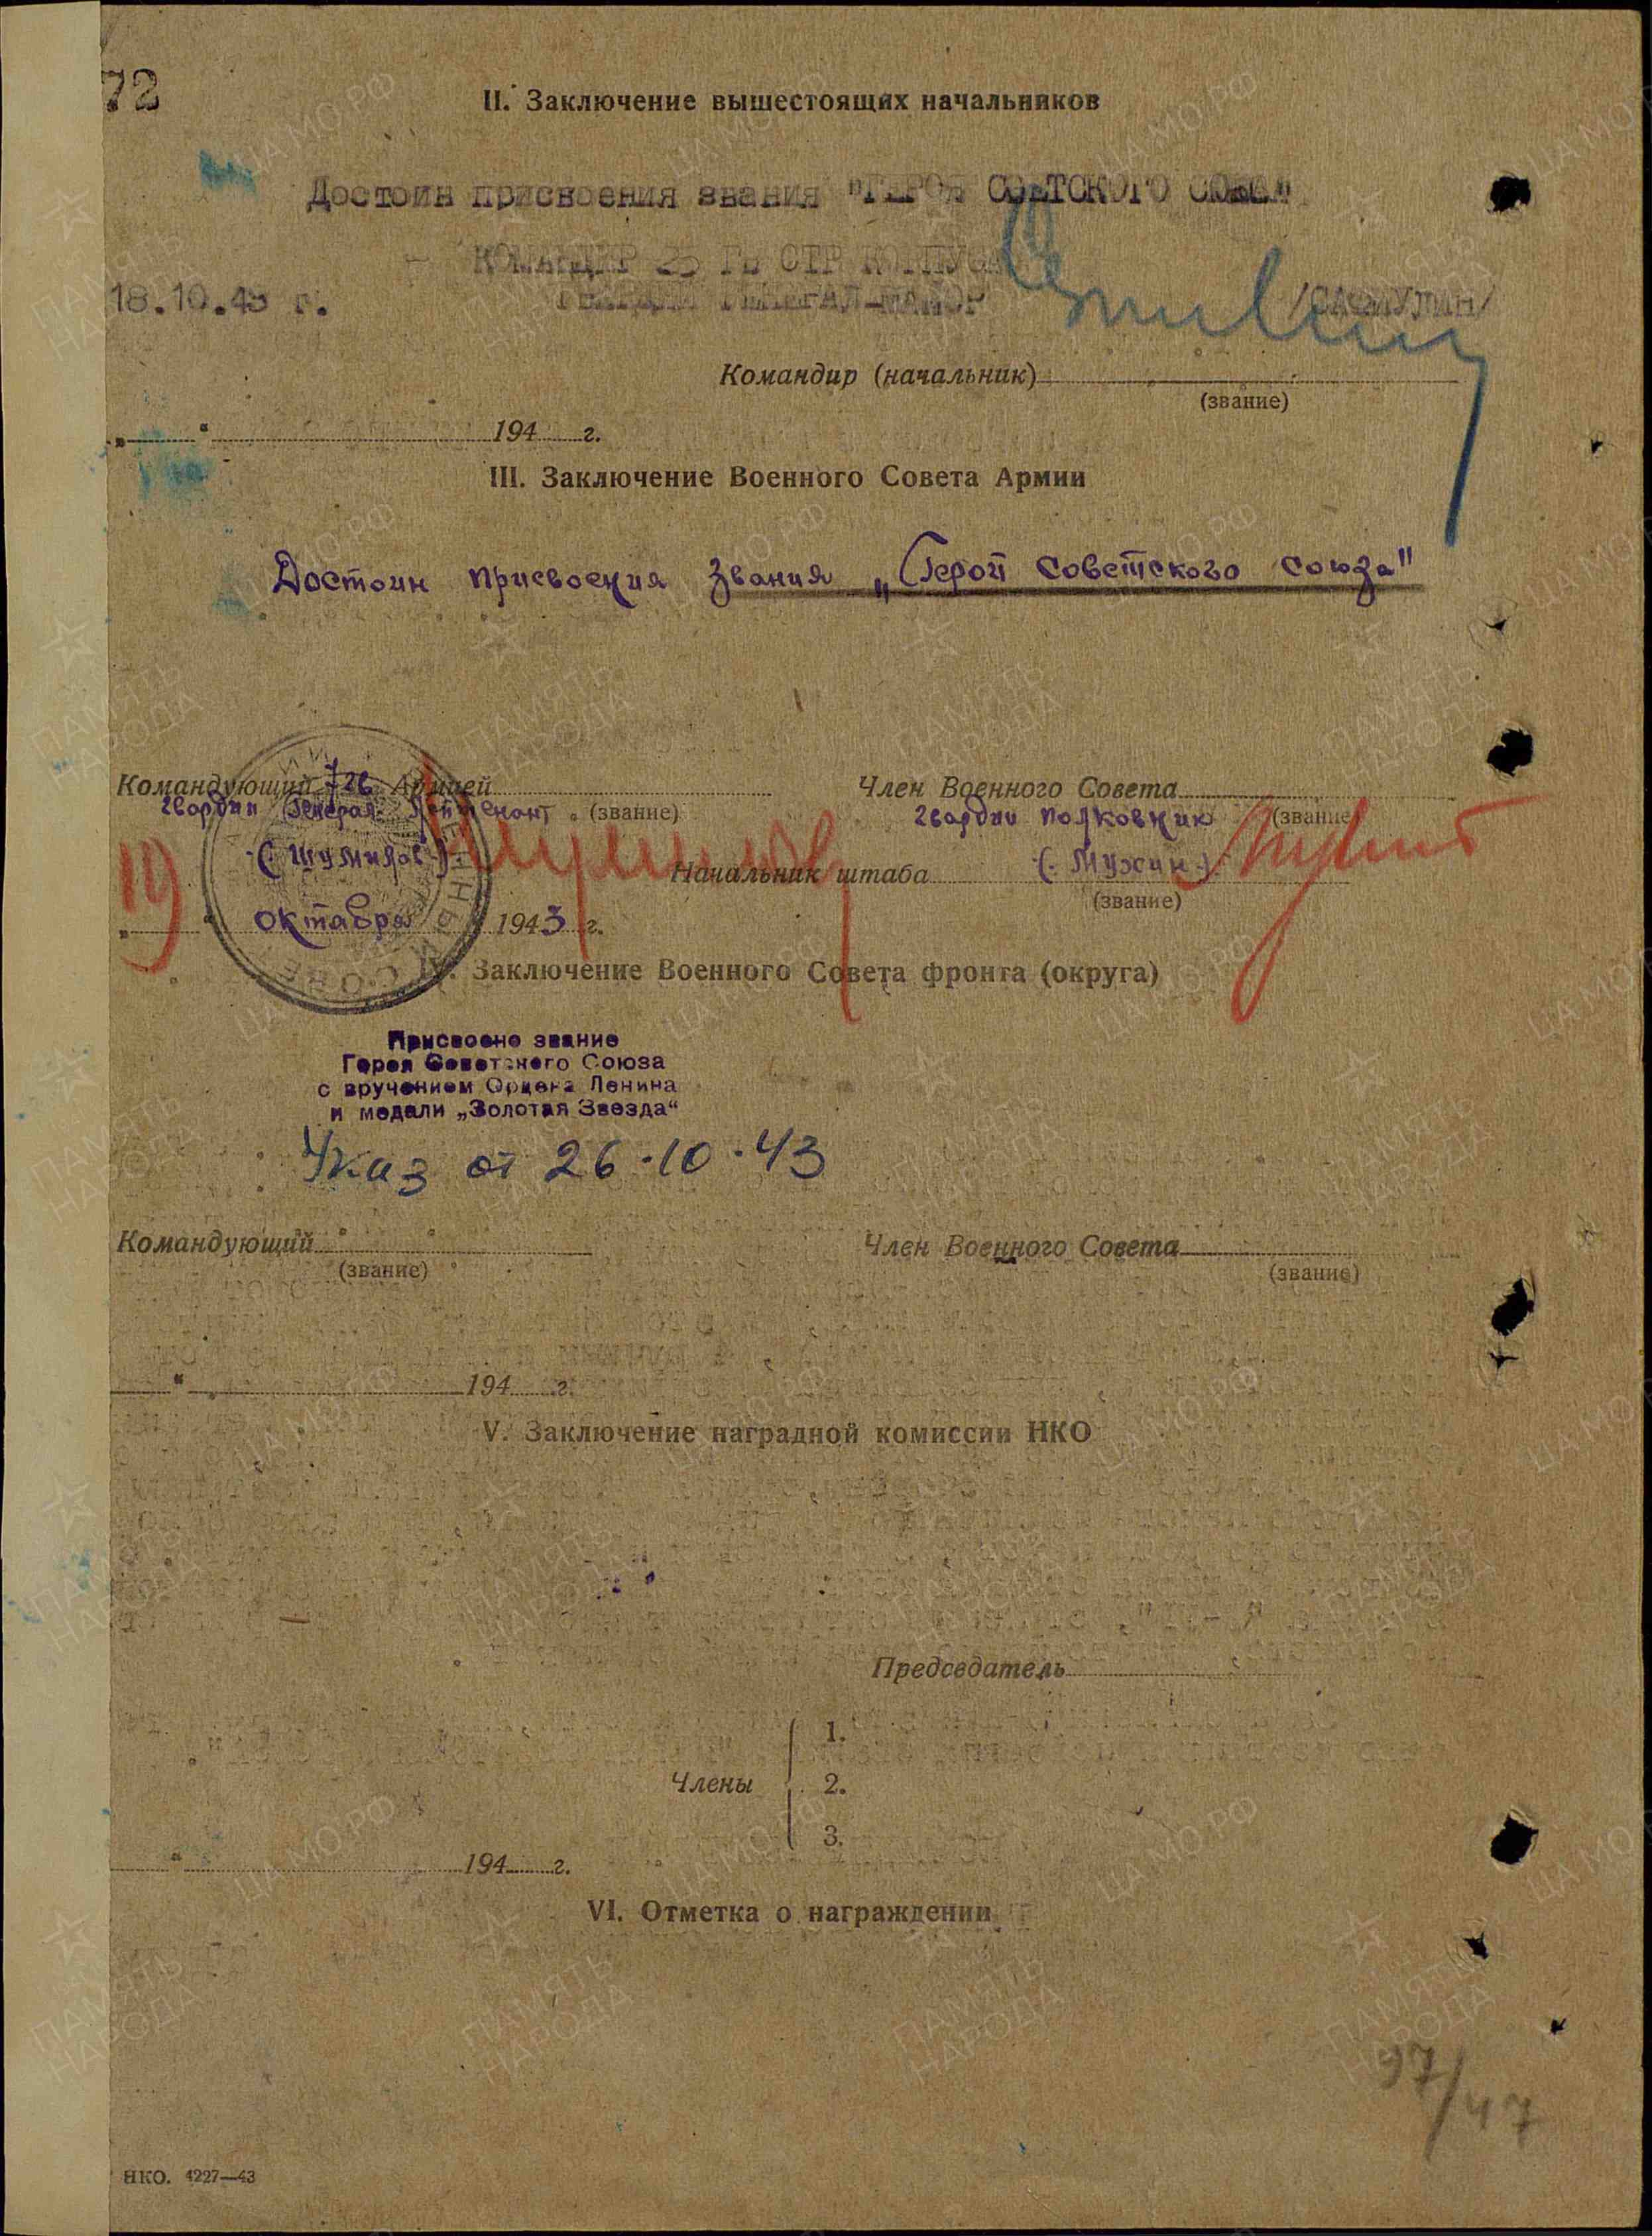 72
II. Заключение вышестоящих начальников
Достоин присвоения звания "ГЕРОЯ СОВЕТСКОГО СОЮЗА"
КОМАНДИР 25 ГВ СТР КОРПУСА
18.10.43 г. ГВАРДИИ ГЕНЕРАЛ-МАЙОР /САФИУЛИН/
Командир (начальник)
(звание)
„ “ 194 г.
III. Заключение Военного Совета Армии
Достоин присвоения звания „Герой Советского Союза"
Командующий 7 гв Армией Член Военного Совета
гвардии генерал лейтенант (звание) гвардии полковник (звание)
(Шумилов) Начальник штаба (Мухин)
(звание)
19 октября 1943 г.
IV. Заключение Военного Совета фронта (округа)
Присвоено звание
Героя Советского Союза
с вручением Ордена Ленина
и медали „Золотая Звезда“
Указ от 26.10.43
Командующий Член Военного Совета
(звание) (звание)
“ 194 г.
V. Заключение наградной комиссии НКО
Председатель
1.
Члены 2.
3.
“ 194 г.
VI. Отметка о награждении
97/47
НКО. 4227—43
ПАМЯТЬ НАРОДА
ЦА МО.РФ